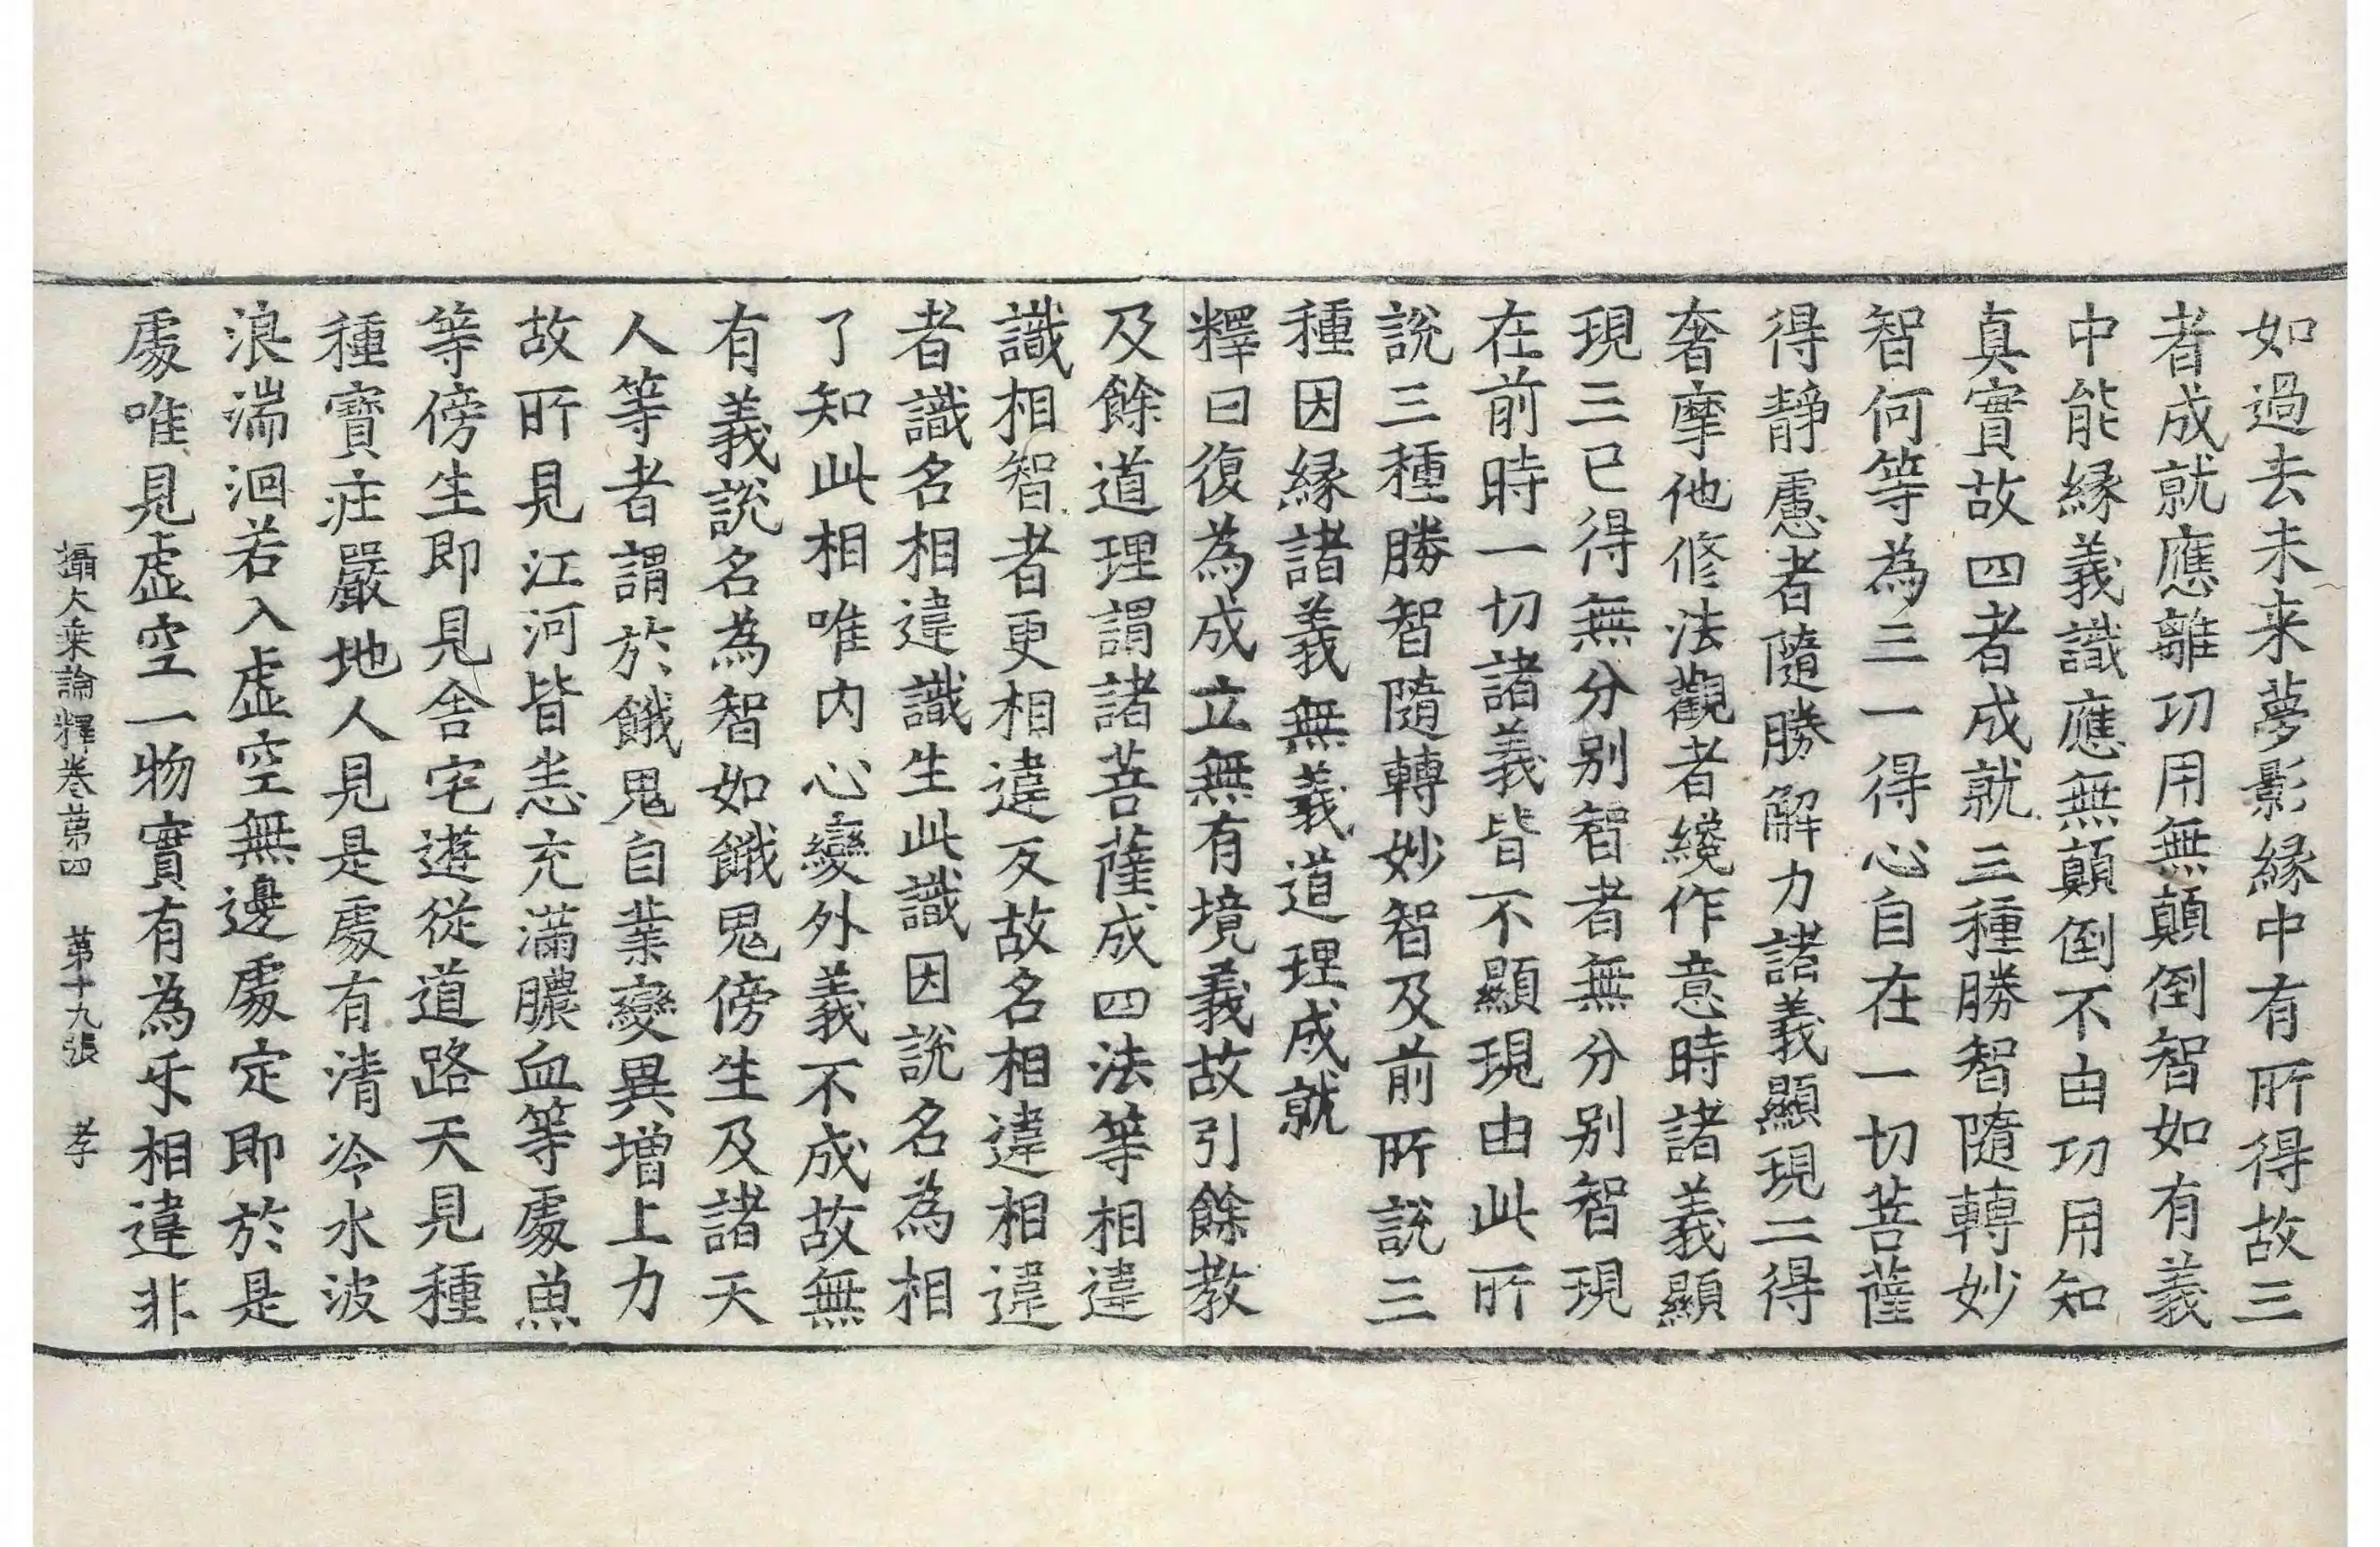 如過去未来夢影縁中有所得故三
者成就應離功用無顛倒智如有義
中能縁義識應無顛倒不由功用知
真實故四者成就三種勝智隨轉妙
智何等為三一得心自在一切菩薩
得靜慮者隨勝解力諸義顯現二得
奢摩他修法觀者纔作意時諸義顯
現三已得無分别智者無分别智現
在前時一切諸義皆不顯現由此所
説三種勝智隨轉妙智及前所説三
種因縁諸義無義道理成就
釋曰復為成立無有境義故引餘教
及餘道理謂諸菩薩成四法等相違
識相智者更相違反故名相違相違
者識名相違識生此識因説名為相
了知此相唯内心變外義不成故無
有義説名為智如餓鬼傍生及諸天
人等者謂於餓鬼自業變異增上力
故所見江河皆悉充滿膿血等處魚
等傍生即見舎宅遊從道路天見種
種寶莊嚴地人見是處有清冷水波
浪湍洄若入虚空無邊處定即於是
處唯見虚空一物實有為乐相違非
攝大乗論釋卷苐四 苐十九張 孝